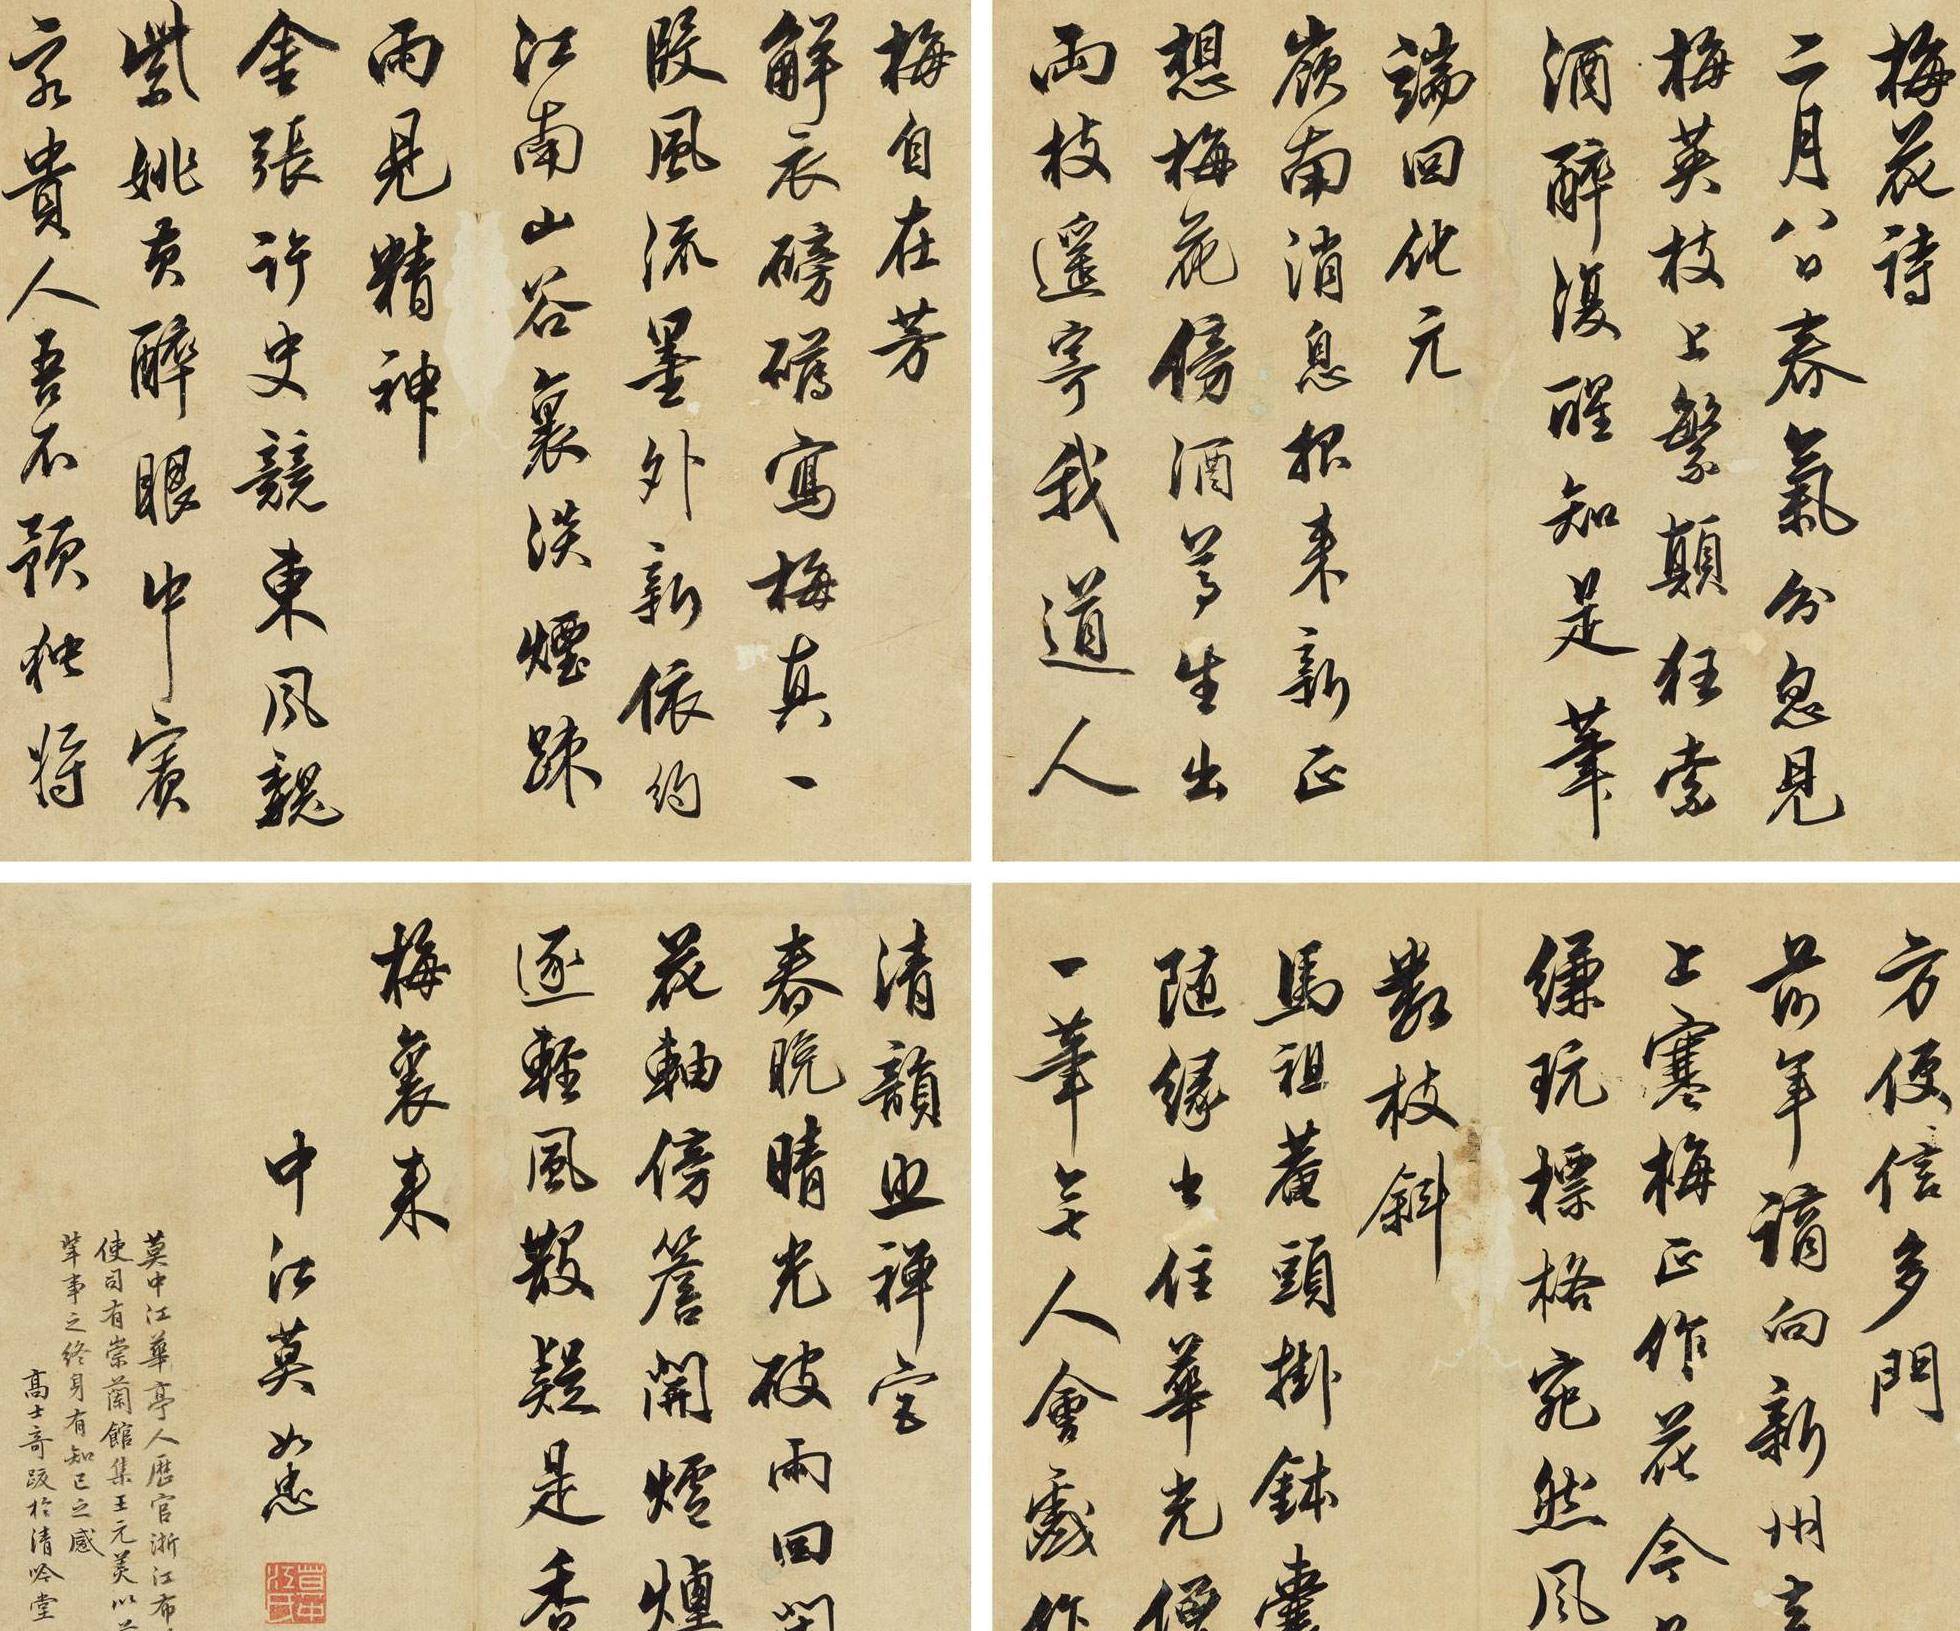 梅花詩
二月八日春氣分忽見
梅英枝上繁顛狂索
酒醉復醒知是筆
端回化元
嶺南消息報来新正
想梅花傍酒尊生出
兩枝遥寄我道人
方便信多門
前年謫向新州去
上寒梅正作花今
縑玩標格宛然風
數枝斜
馬祖菴頭掛鉢囊
随縁出住華光僧
一筆無人會戲作
梅自在芳
解衣磅礴寫梅真一
段風流墨外新依約
江南山谷裏淡煙踈
雨見精神
金張許史競東風魏
紫姚黄醉眼中賓
家貴人吾不預独将
清韻與禅宗
春晚晴光破雨回閑
花軸傍簷開爐煙
逐輕風散疑是香
梅裏来
中江莫如忠
莫中江華亭人歷官浙江布
使司有崇蘭館集王元美以
事之終身有知己之感
高士奇跋於清吟堂